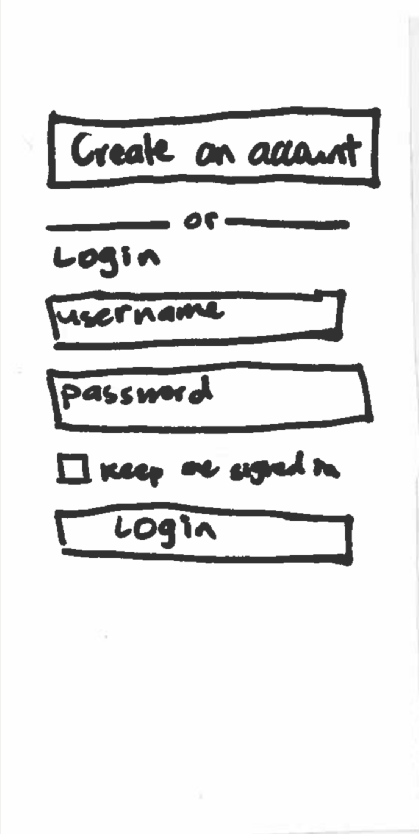 Create an account
or
Login
username
password
keep me signed in
Login